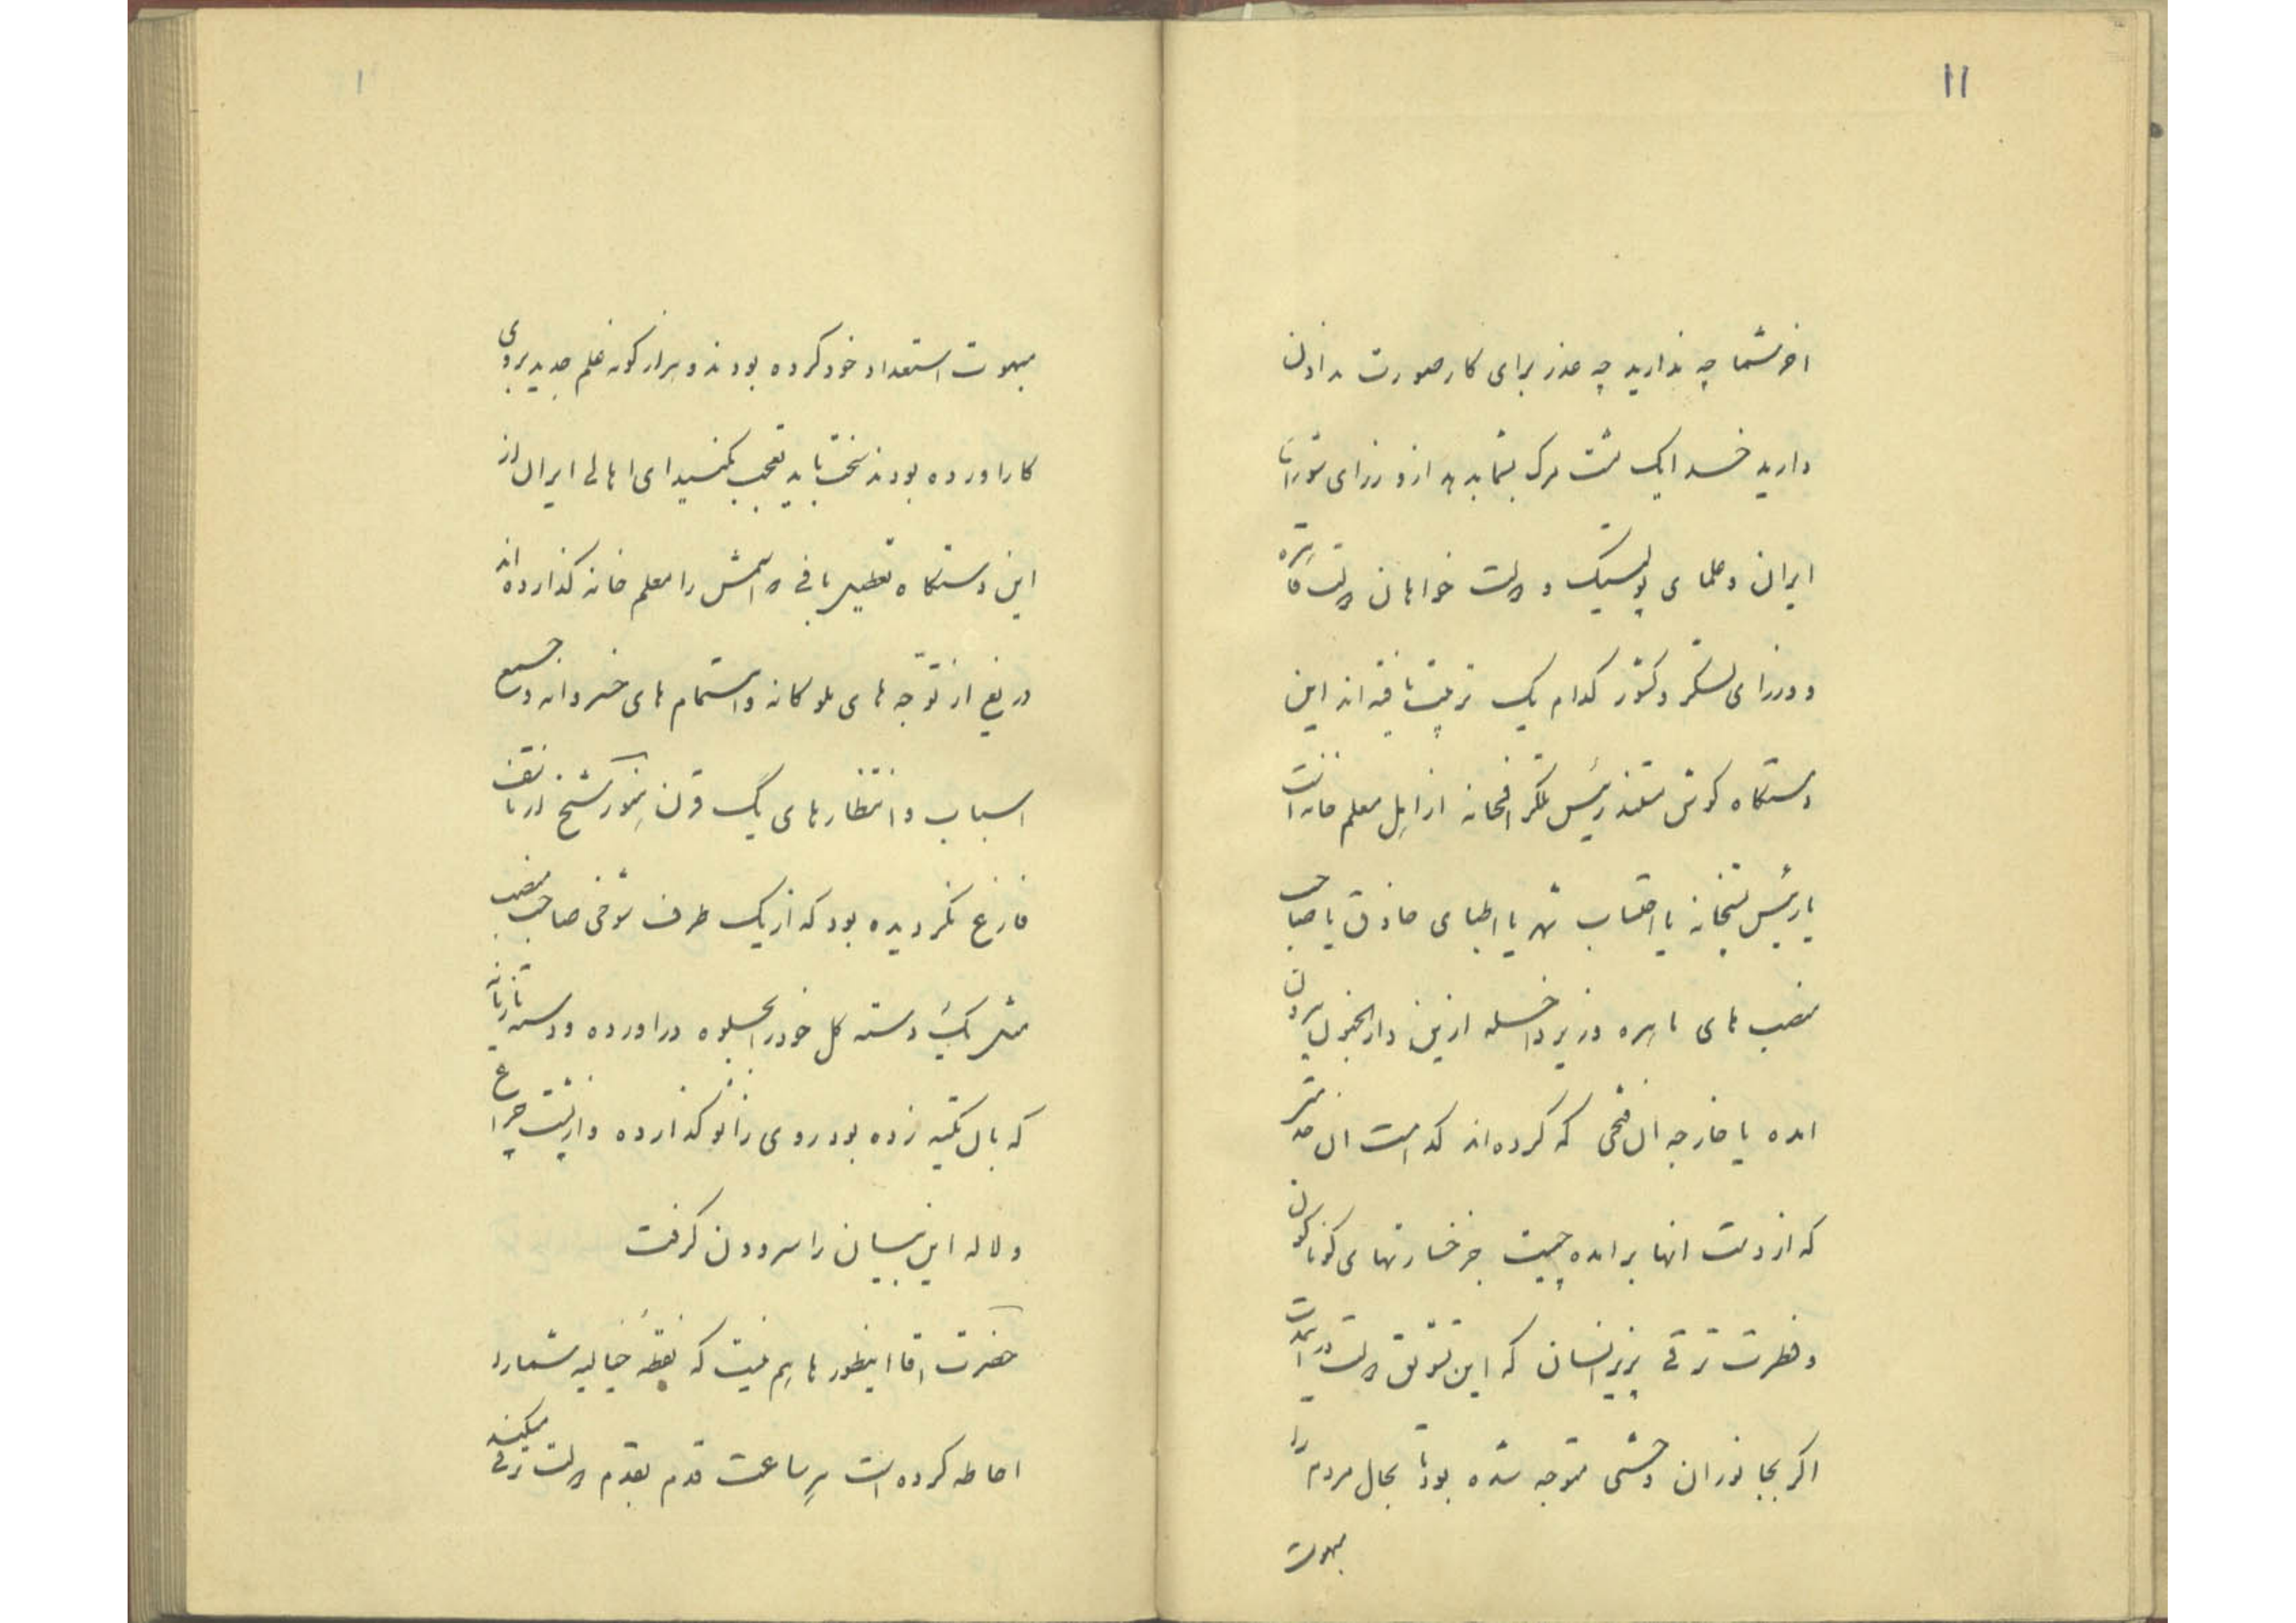 ۱۱
اخر شما چه ندارید چه عذر برای کار صورت ندادن
دارید خدا یک مشت مرک بشما بدهد از وزرای شورای
ایران و علمای پولیتیک دولت خواهان دولت قاهره
و وزرای لشکر و کشور کدام یک تربیت یافته اند این
دستگاه کوش رئیس تلکرافخانه از اهل معلم خانه است
یا رئیس پستخانه یا احتساب شهر یا اطبای حاذق یا صاحب
منصب های ماهره وزیر داخله ازین دارالجنون بیرون
امده یا خارجه ان فتحی که کرده اند کدامست ان
که از دست انها بر امده چیست جز خسارتهای کوناکون
و فطرت ترقی پذیر انسان که این تشویق دولت در
اکر بجانوران وحشی متوجه شده بود تا بحال مردم را
مبهوت
۱
مبهوت استعداد خود کرده بودند و هزار کونه علم جدید بروی
کار اورده بودند سخت باید تعجب بکنید ای اهالی ایران از
این دستکاه که اسمش را معلم خانه کذارده اند
دریغ از توجه های ملوکانه و اهتمام های خسروانه و جمیع
اسباب و انتظارهای یک قرن هنوز شیخ از
فارغ نکردیده بود که از یک طرف شوخی صاحب منصب
مثل یک دسته کل خود را بجلوه دراورده و دسته تازیانه
که بال تکیه زده بود روی زانو کذارده و از پشت چراغ
و لاله این بیان را سرودن کرفت
حضرت اقا اینطورها هم نیست که نقطه خیالیه شما را
احاطه کرده است هر ساعت قدم بقدم دولت ترقی میکند